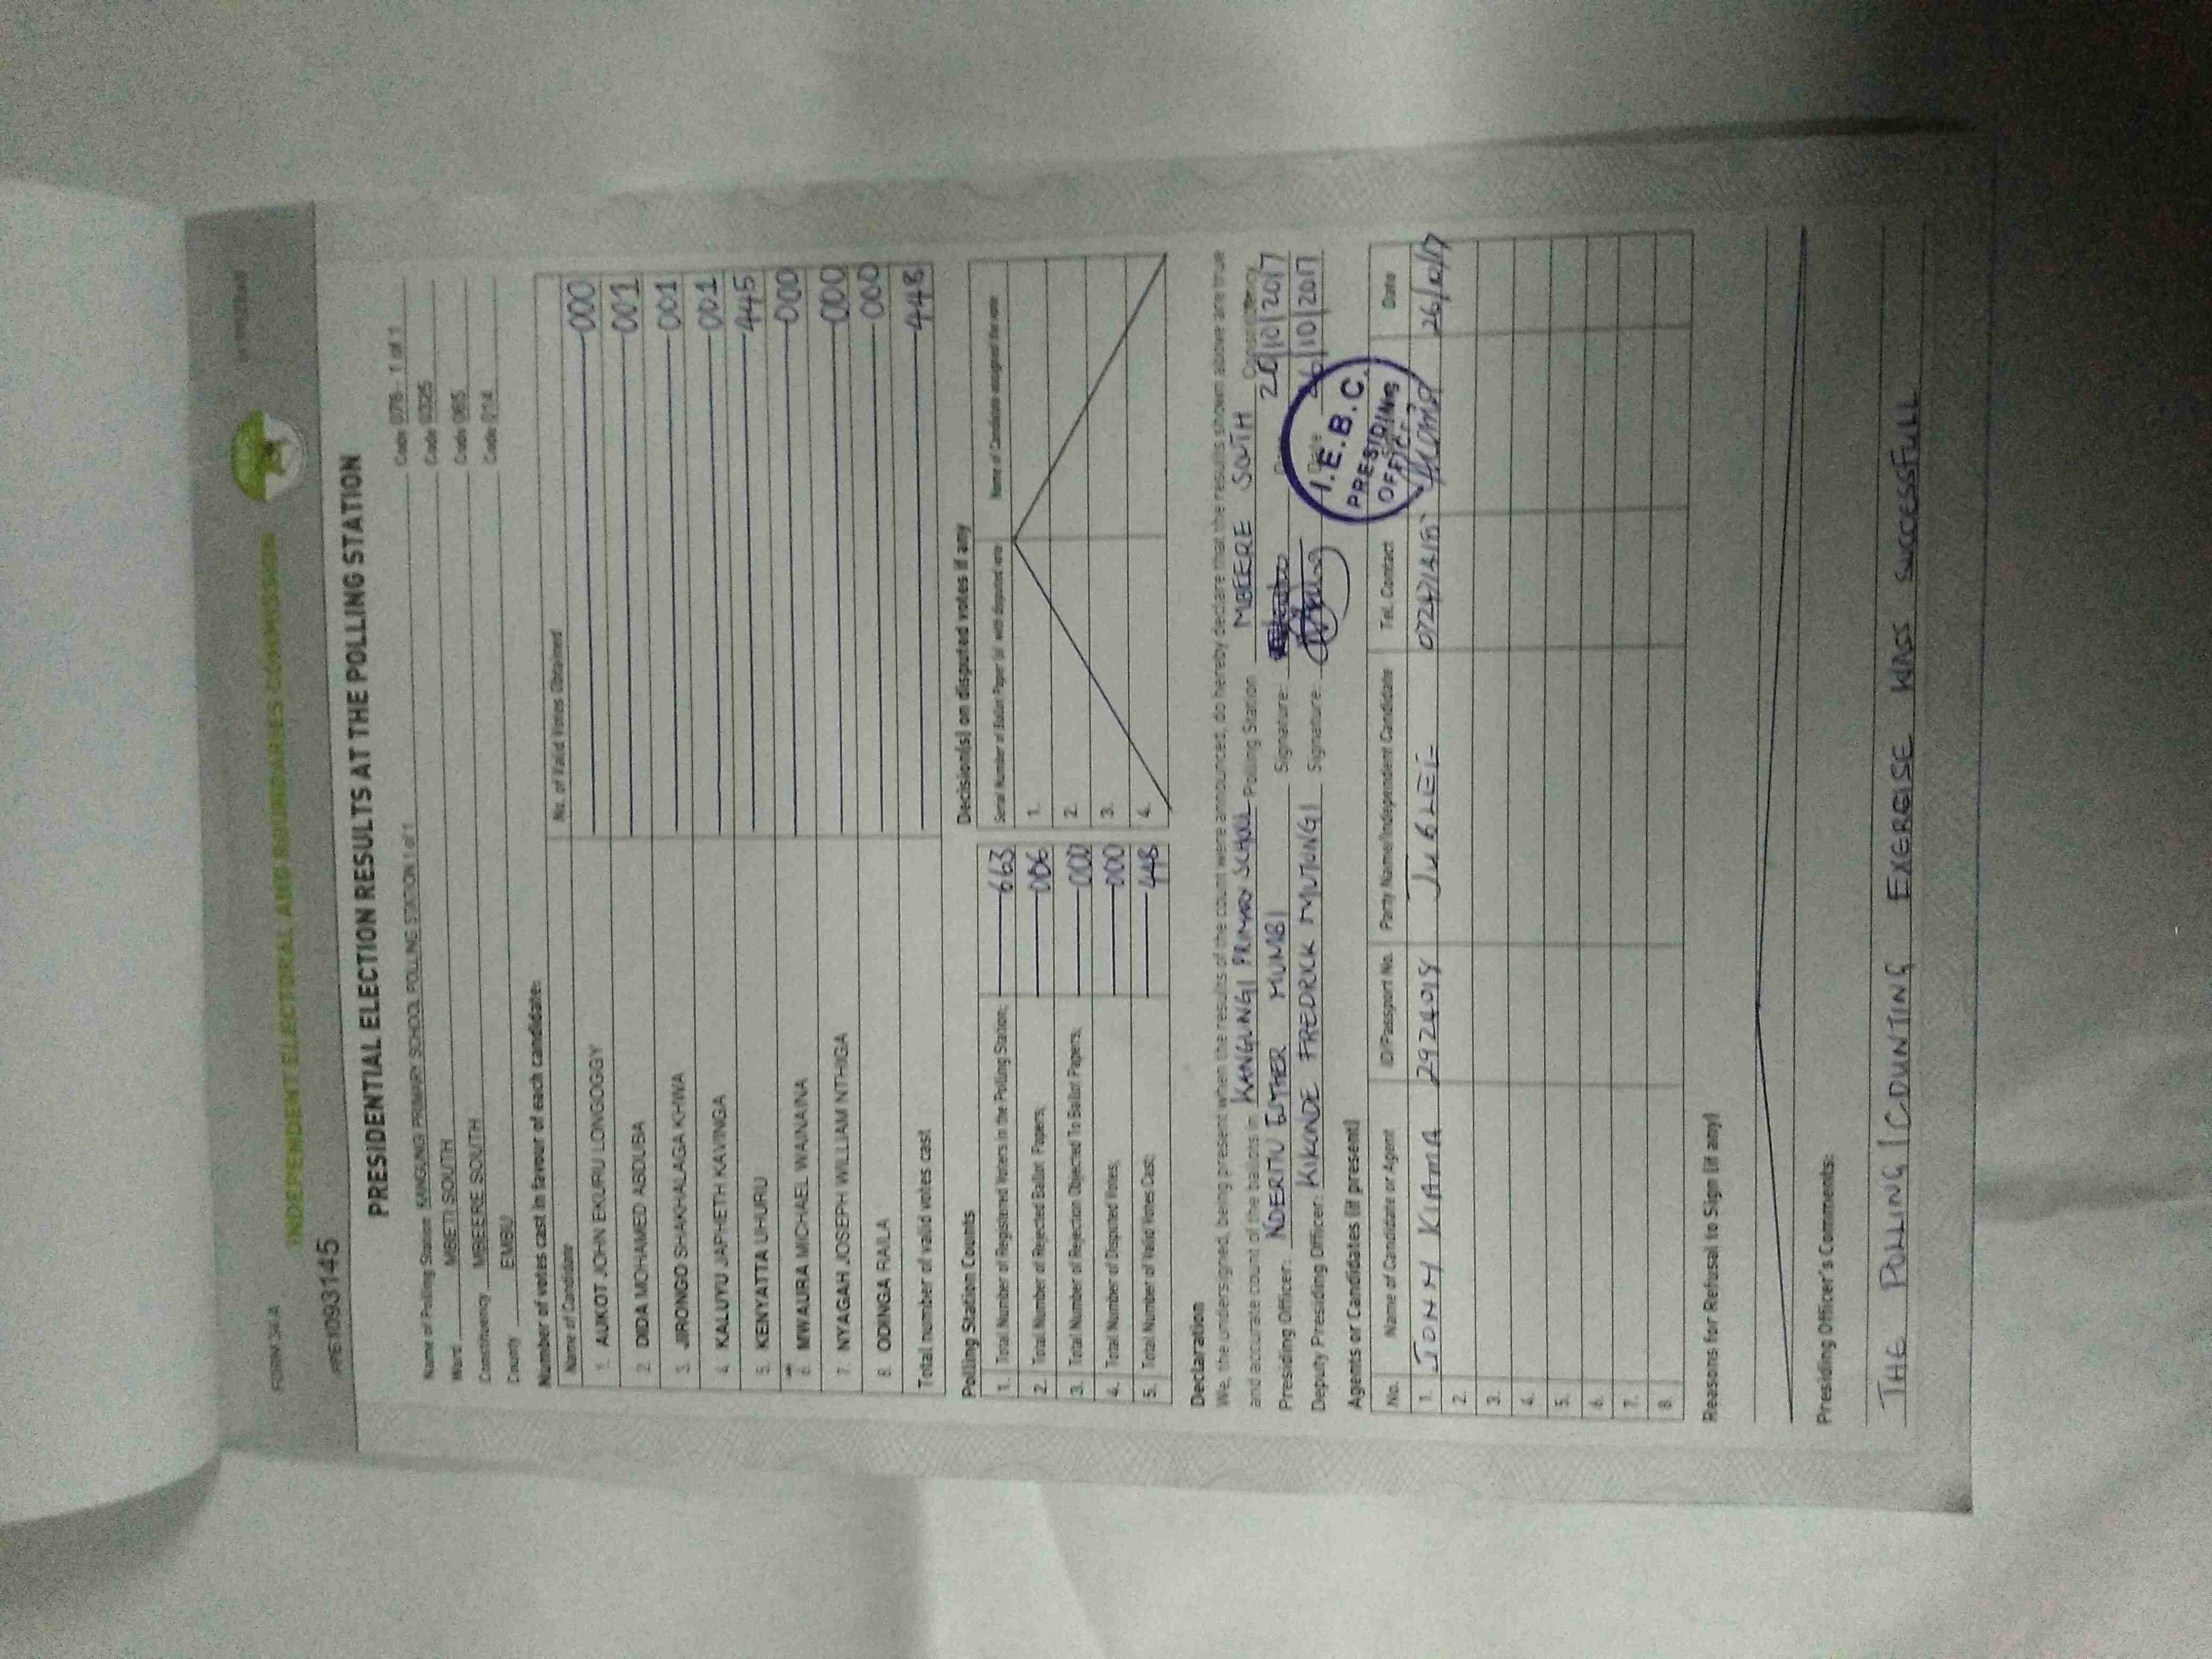 FORM 34A
INDEPENDENT ELECTORAL AND BOUNDARIES COMMISSION
PRE1093145
PRESIDENTIAL ELECTION RESULTS AT THE POLLING STATION
Name of Polling Station KANGUNGI PRIMARY SCHOOL POLLING STATION 1 of 1 Code 076 - 1 of 1
Ward MBETI SOUTH Code 0325
Constituency MBEERE SOUTH Code 065
County EMBU Code 014
Number of votes cast in favour of each candidate:
Name of Candidate No. of Valid Votes Obtained
1. AUKOT JOHN EKURU LONGOGGY 000
2. DIDA MOHAMED ABDUBA 001
3. JIRONGO SHAKHALAGA KHWA 001
4. KALUYU JAPHETH KAVINGA 001
5. KENYATTA UHURU 445
6. MWAURA MICHAEL WAINAINA 000
7. NYAGAH JOSEPH WILLIAM NTHIGA 000
8. ODINGA RAILA 000
Total number of valid votes cast 448
Polling Station Counts
1. Total Number of Registered Voters in the Polling Station; 663
2. Total Number of Rejected Ballot Papers; 006
3. Total Number of Rejection Objected To Ballot Papers; 000
4. Total Number of Disputed Votes; 000
5. Total Number of Valid Votes Cast; 448
Decision(s) on disputed votes if any
Serial Number of Ballot Paper (s) with disputed vote Name of Candidate assigned the vote
1.
2.
3.
4.
Declaration
We, the undersigned, being present when the results of the count were announced, do hereby declare that the results shown above are true
and accurate count of the ballots in KANGUNGI PRIMARY SCHOOL Polling Station MBEERE SOUTH Constituency
Presiding Officer: NDERITU ESTHER MUMBI Signature: 26/10/2017
Deputy Presiding Officer: KIKUNDE FREDRICK MUTUNGI Signature: Date 26/10/2017
I.E.B.C.
PRESIDING
OFFICER
Agents or Candidates (if present)
No. Name of Candidate or Agent ID/Passport No. Party Name/Independent Candidate Tel. Contact Date
1. JOHN KIAMA 29224018 JUBLEE 26/10/17
2.
3.
4.
5.
6.
7.
8.
Reasons for Refusal to Sign (if any)
Presiding Officer's Comments:
THE POLLING / COUNTING EXERGISE WASS SUCCESSFULL